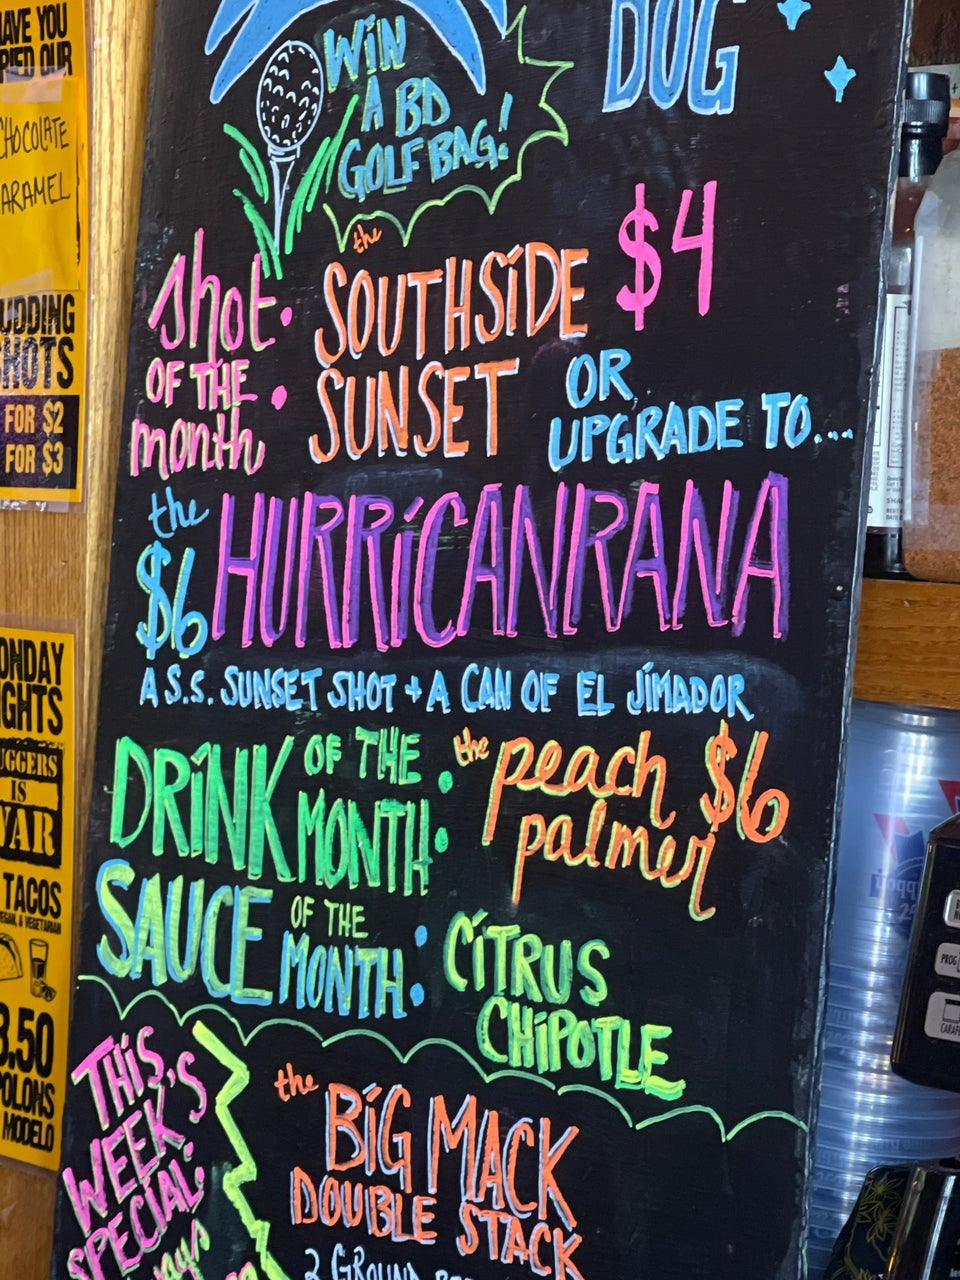 WIN
A BD
GOLF BAG!
DOG
Shot
OF THE
month:
the
SOUTHSIDE
SUNSET
$4
OR
UPGRADE TO....
the
$6
HURRICANRANA
A S.S. SUNSET SHOT + A CAN OF EL JIMADOR
DRINK OF THE
MONTH:
the peach
palmer
$6
SAUCE OF THE
MONTH:
CITRUS
CHIPOTLE
THIS
WEEK'S
SPECIAL:
the
BIG MACK
DOUBLE STACK
2 GROUND
HAVE YOU
TRIED OUR
CHOCOLATE
CARAMEL
PUDDING
SHOTS
FOR $2
FOR $3
MONDAY
NIGHTS
IS
WAR
TACOS
VEGAN, & VEGETARIAN
3.50
MODELO
PROG
CARAFE